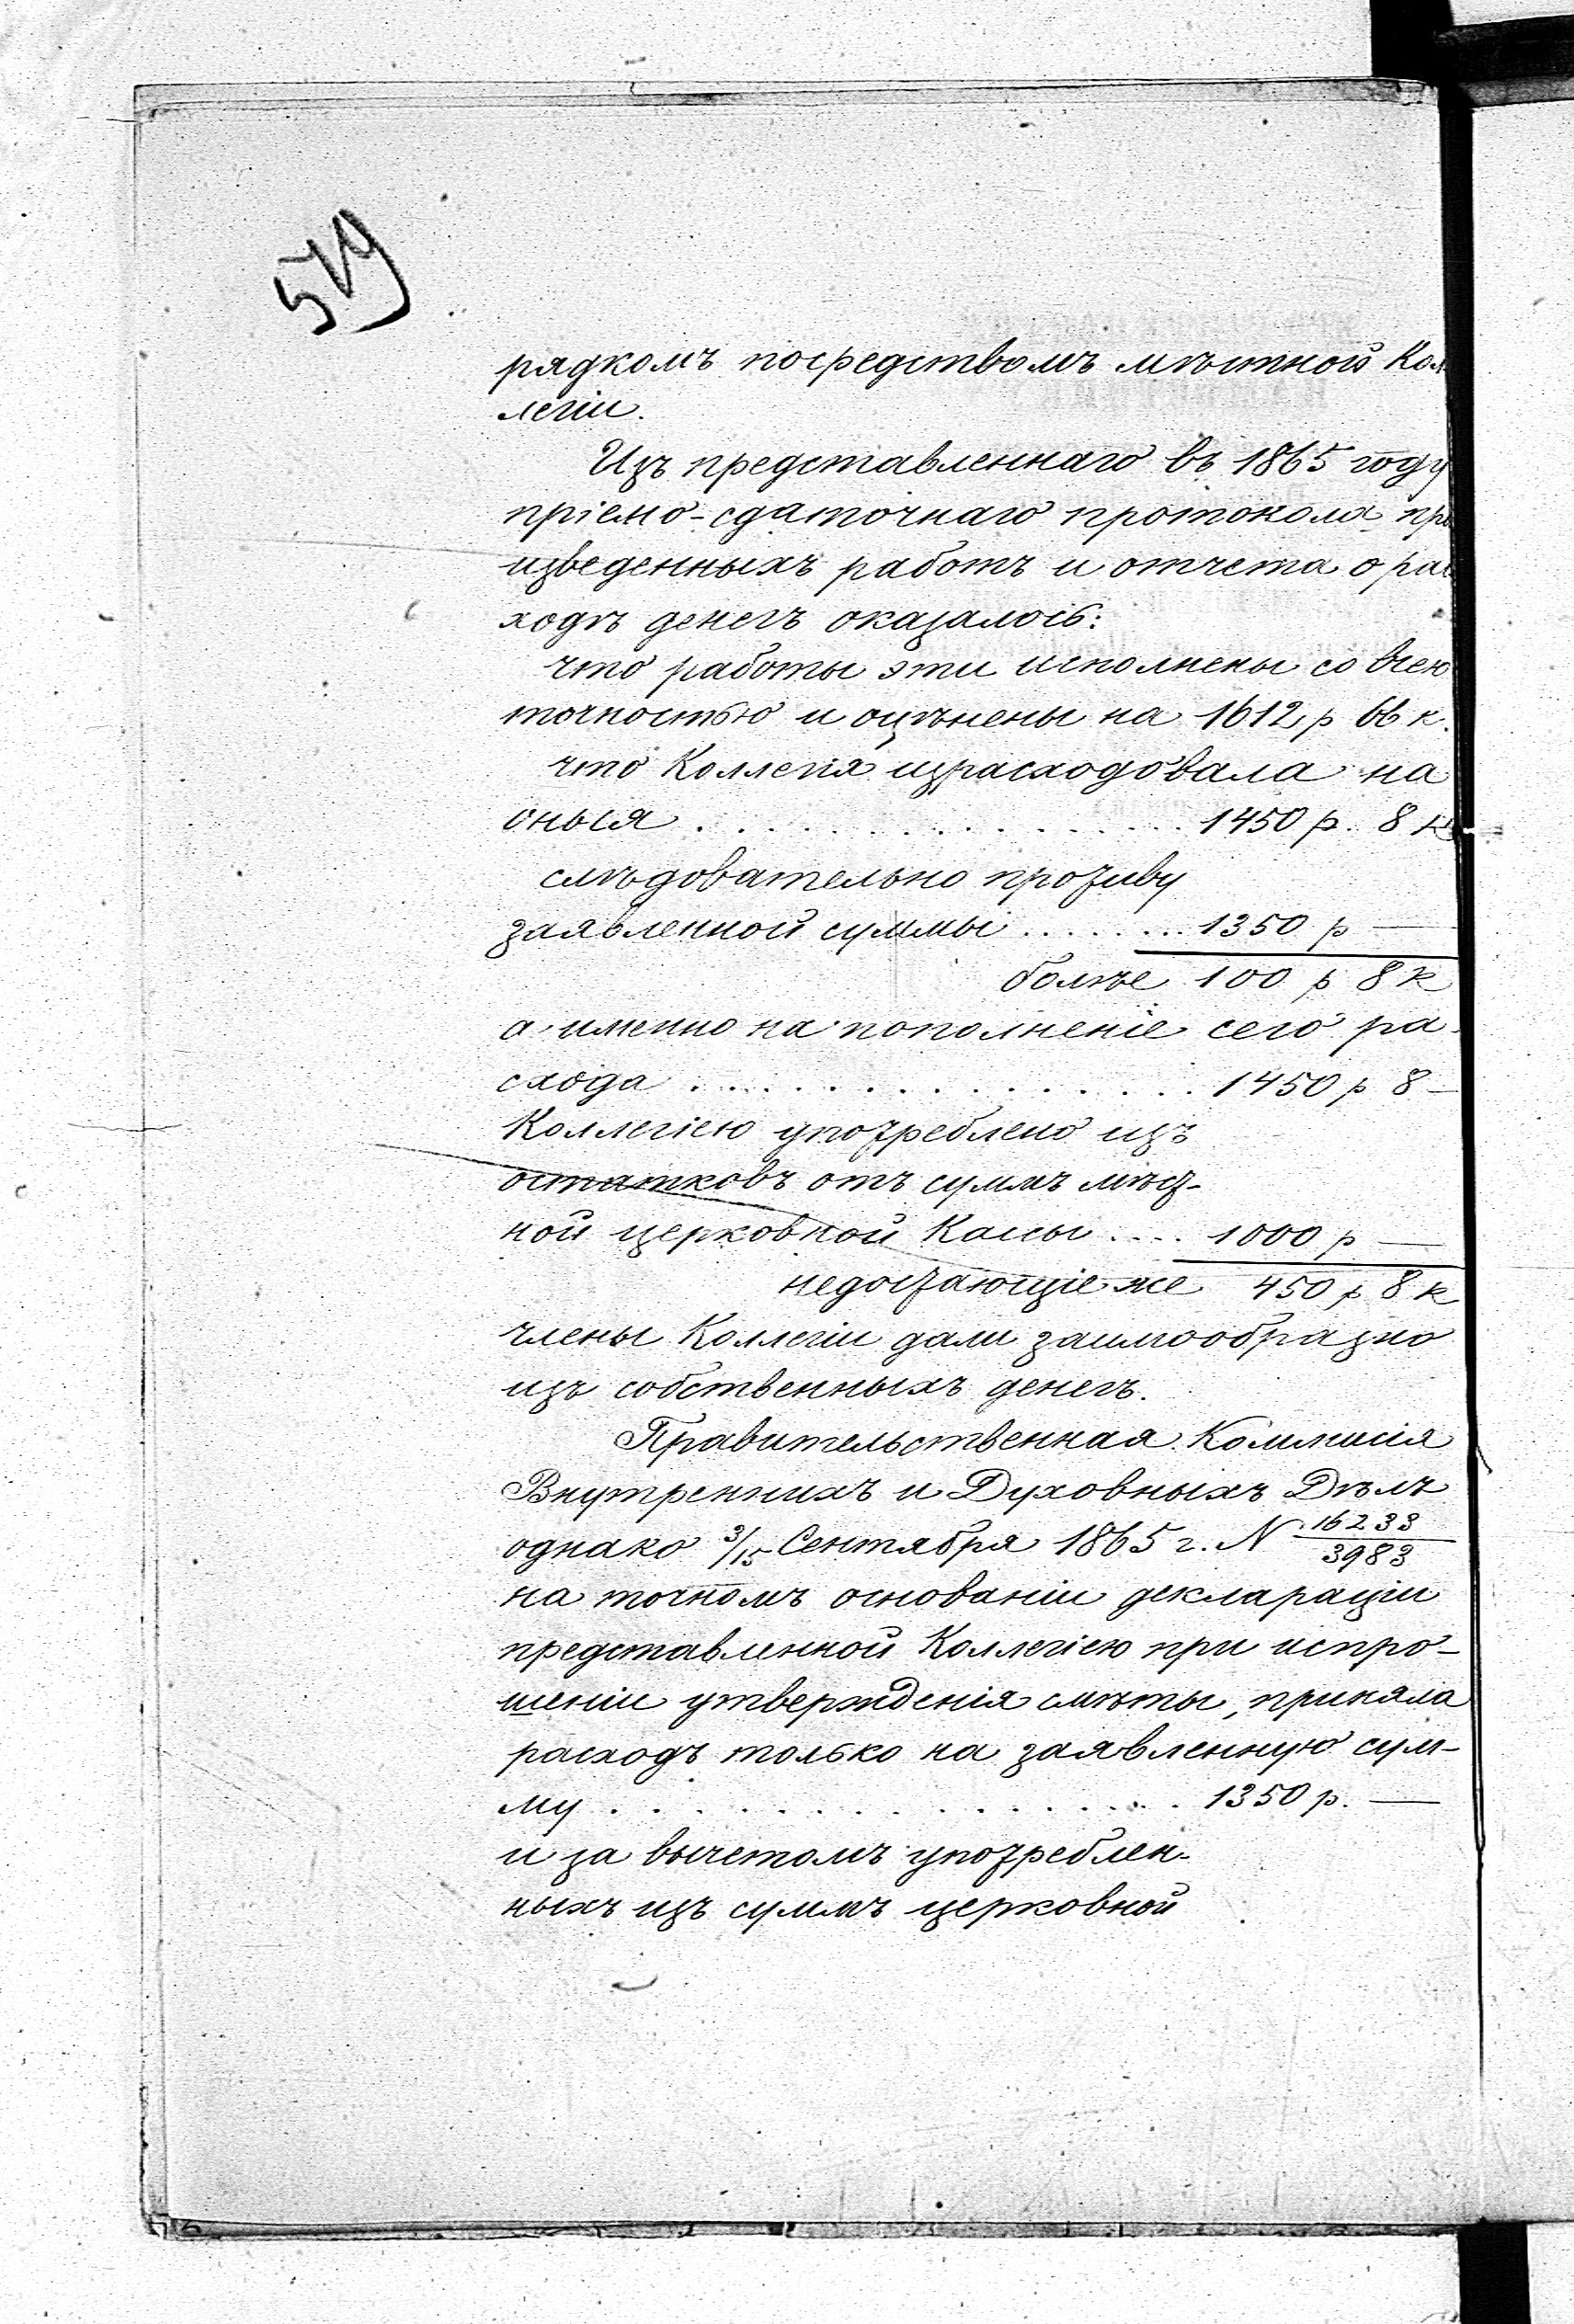 519
рядкомъ посредствомъ мѣстной Кол
легіи.
Изъ представленнаго въ 1865 году
пріемо-сдаточнаго протокола про
изведенныхъ работъ и отчета о рас
ходѣ денегъ оказалось:
что работы эти исполнены со всею
точностью и оцѣнены на 1612 р 66 к.
что Коллегія израсходовала на
оныя . . . . . . . . . . . . . . . . 1450 р. 8 к
слѣдовательно противу
заявленной суммы . . . . . . . 1350 р —
болѣе 100 р 8 к
а именно на пополненіе сего ра-
схода . . . . . . . . . . . . . . . . 1450 р 8 —
Коллегіею употреблено изъ
остатковъ отъ суммъ мѣст-
ной церковной Кассы . . . . 1000 р —
недостающіе же 450 р 8 к
члены Коллегіи дали заимообразно
изъ собственныхъ денегъ.
Правительственная Коммисія
Внутреннихъ и Духовныхъ Дѣлъ
однако 3/15 Сентября 1865 г. N 16233/3983
на точномъ основаніи декларации
представленной Коллегіею при испро-
шеніи утвержденія смѣты, приняла
расходъ только на заявленную сум-
му . . . . . . . . . . . . . . . . 1350 р. —
и за вычетомъ употреблен-
ныхъ изъ суммъ церковной